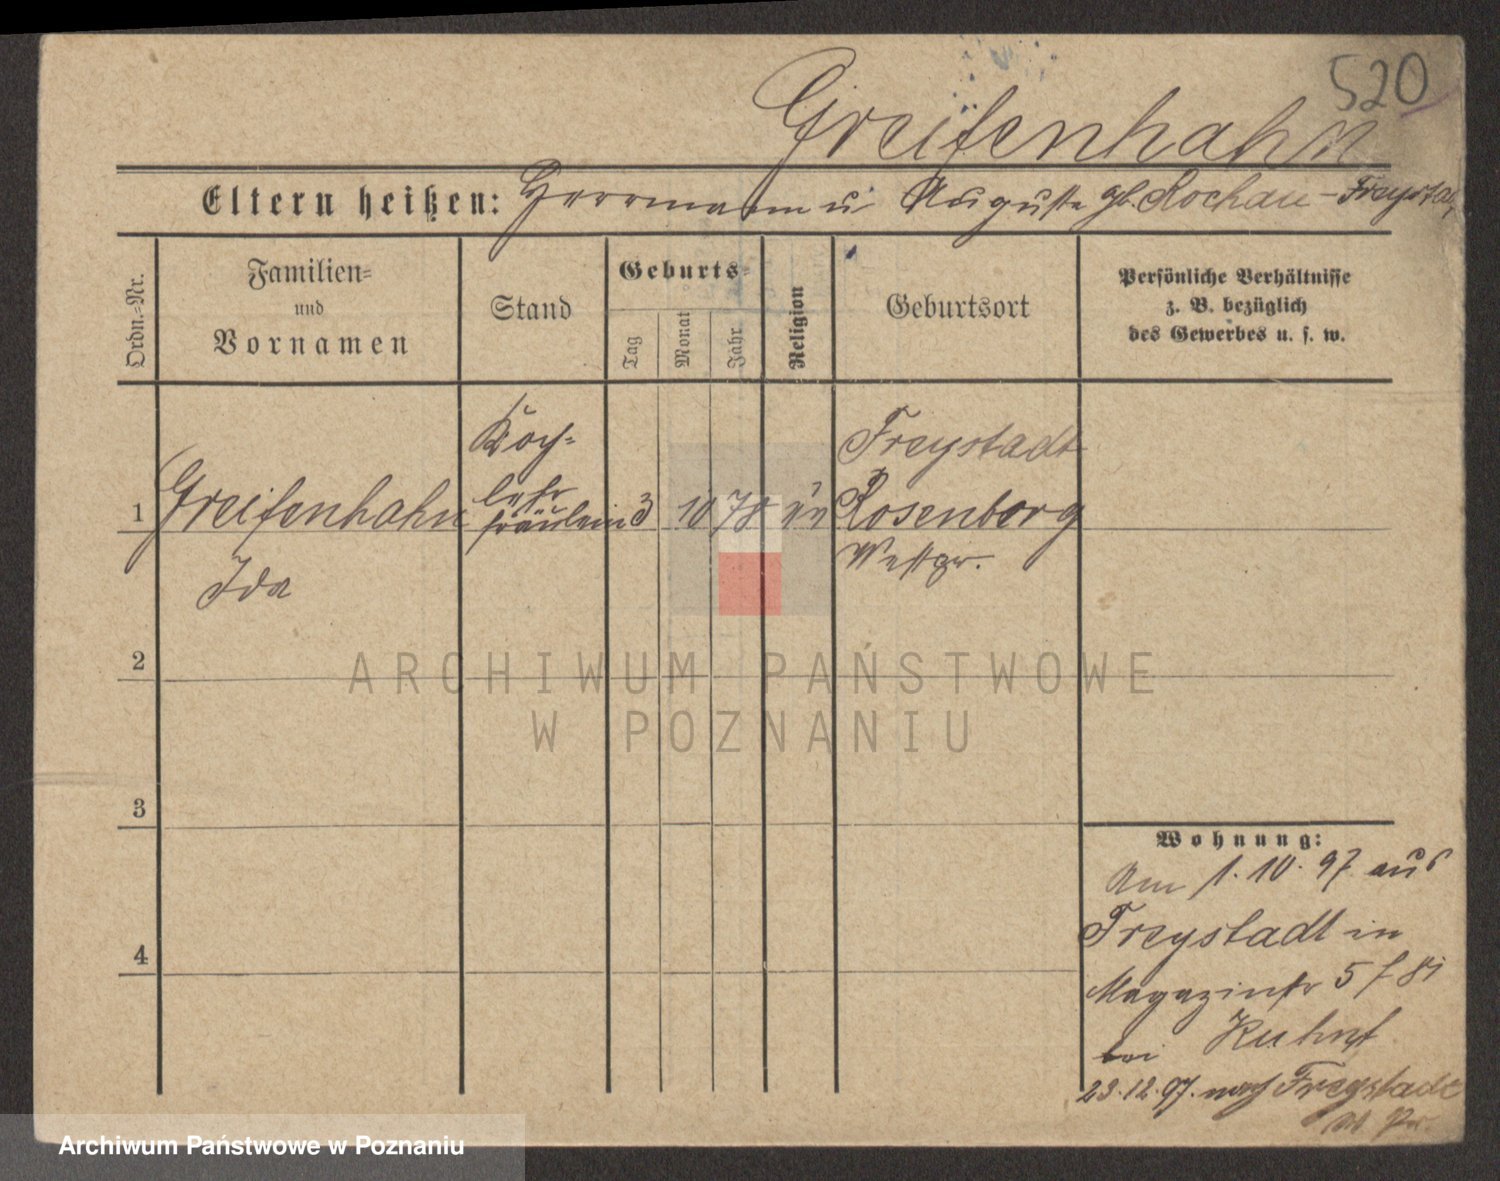 520
Greifenhahn
Eltern heißen: Herrmann u Auguste gb. Rochau - Freystadt
Ordn.=Nr.
Familien=
und
Vornamen
Stand
Geburts=
Tag
Monat
Jahr
Religion
Geburtsort
Persönliche Verhältnisse
z. B. bezüglich
des Gewerbes u. s. w.
1
Greifenhahn
Ida
Koch=
lehr
fräulein
3
10
78
ev
Freystadt
Rosenberg
Westpr.
2
3
4
Wohnung:
Am 1.10.97 aus
Freystadt in
Magazinstr 5
bei
23.12.97. nach Freystadt
W Pr.
ARCHIWUM PAŃSTWOWE
W POZNANIU
Archiwum Państwowe w Poznaniu